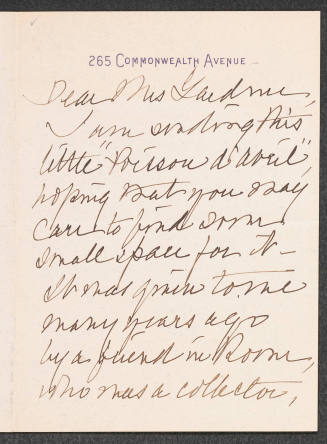 265 COMMONWEALTH AVENUE
Dear Mrs Gardner,
I am sending this
little "Poisson d'avril",
hoping that you may
care to find some
small space for it –
It was given to me
many years ago
by a friend in Rome,
who was a collector,